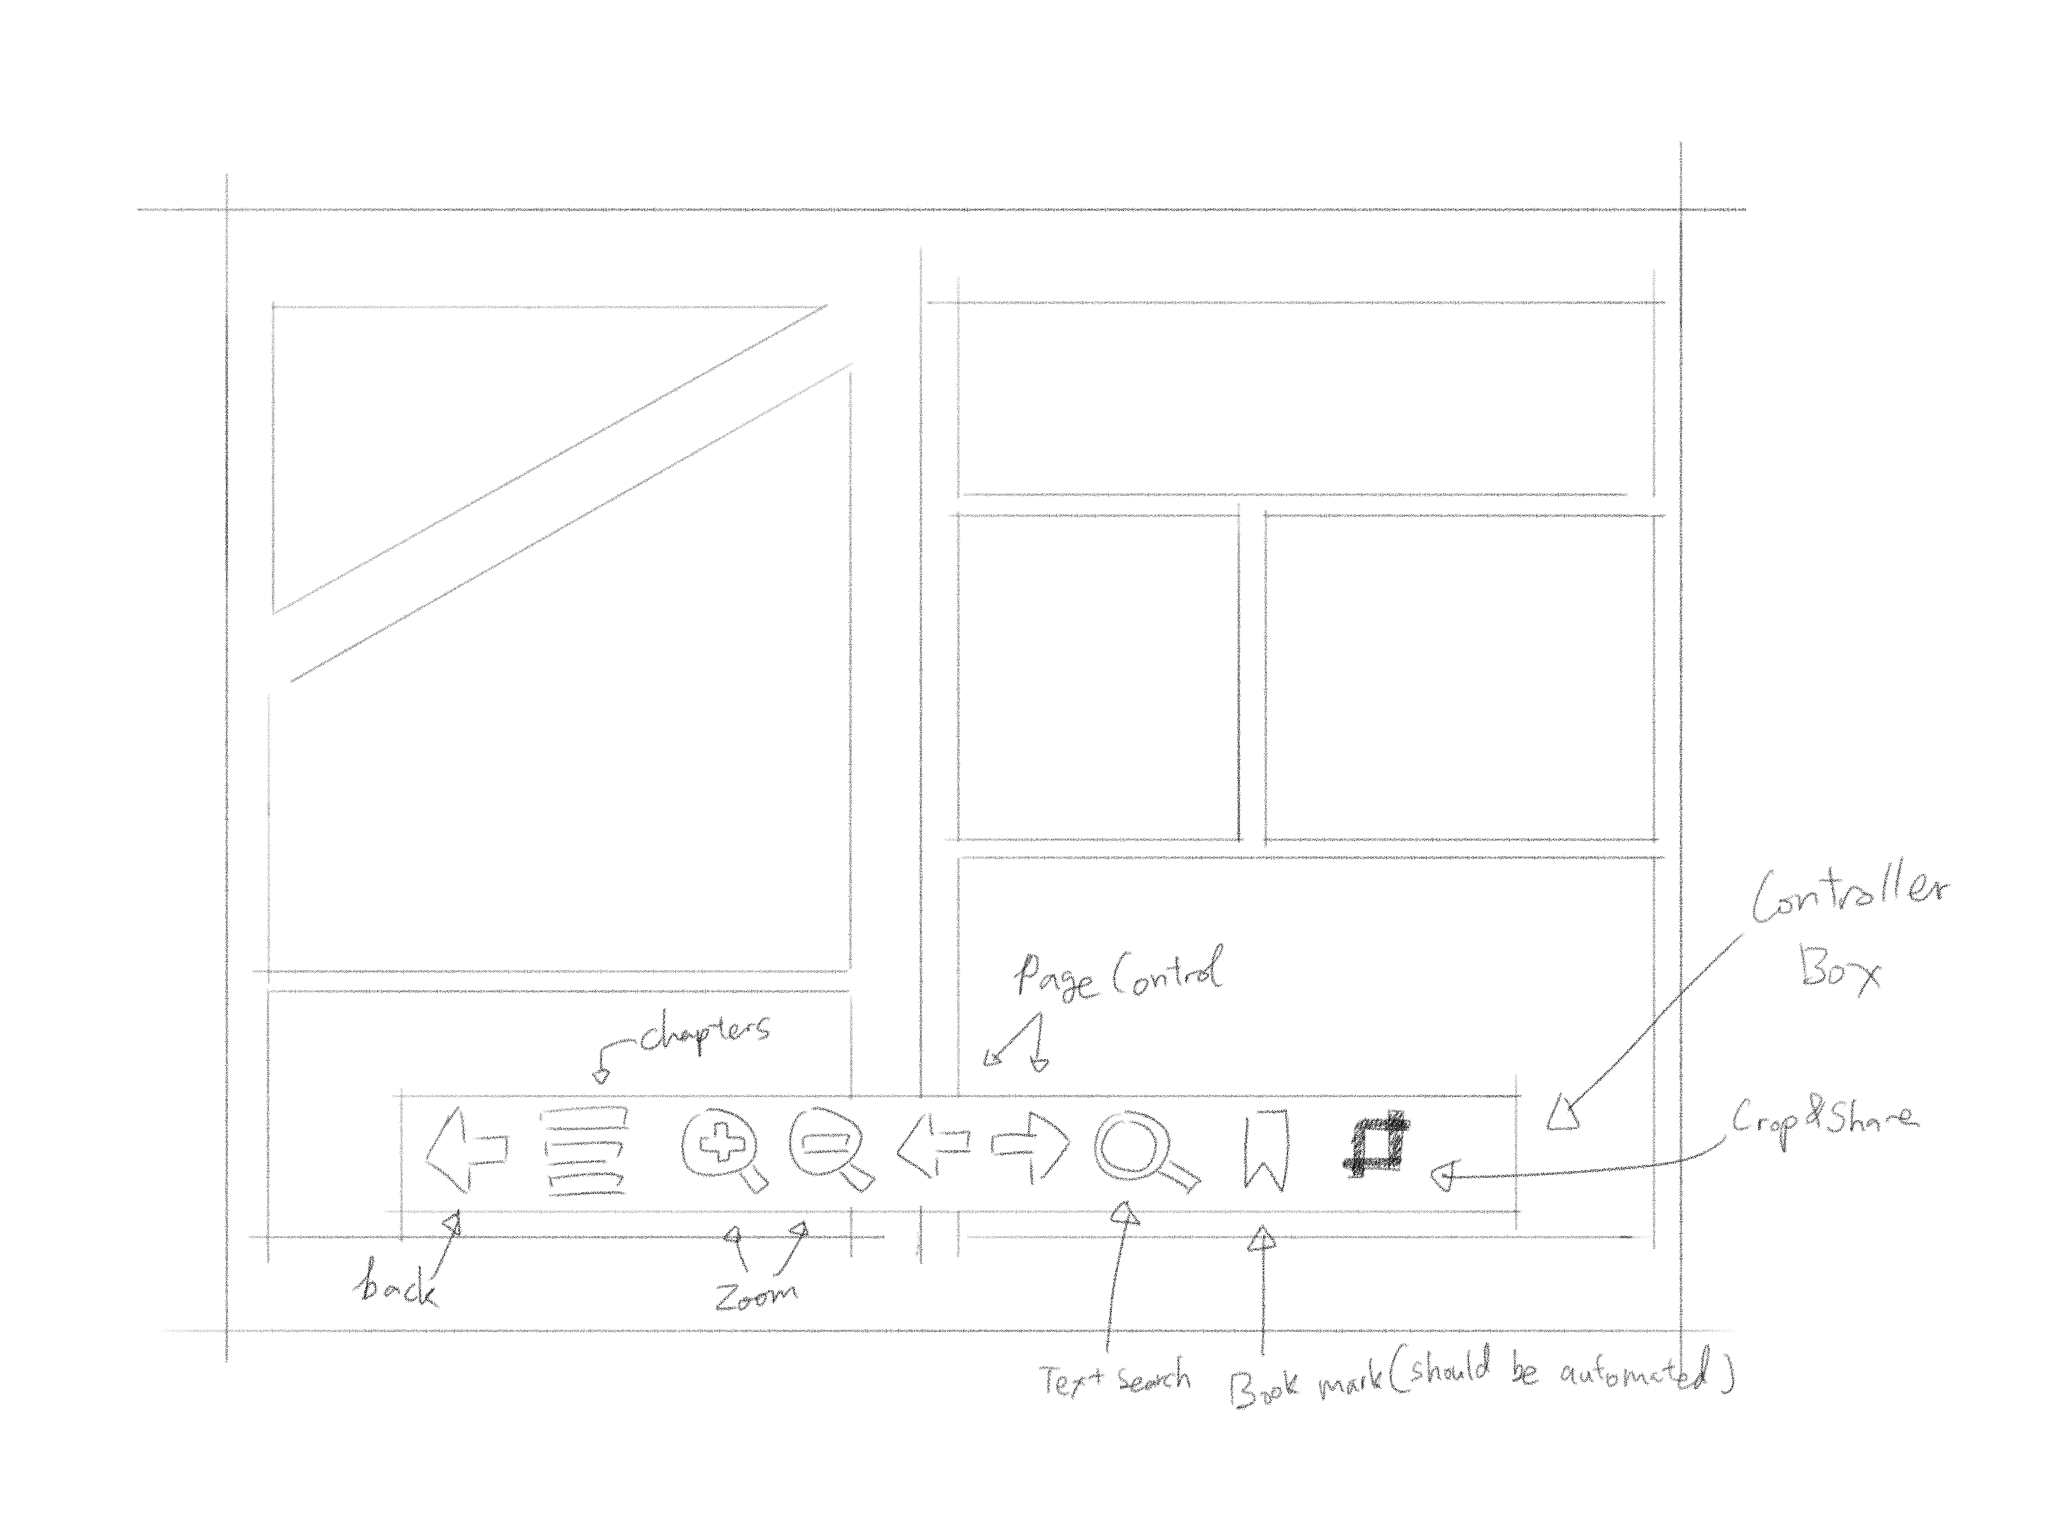 Controller
Box
Page Control
chapters
Crop&Share
back
Zoom
Text Search
Book mark (should be automated)